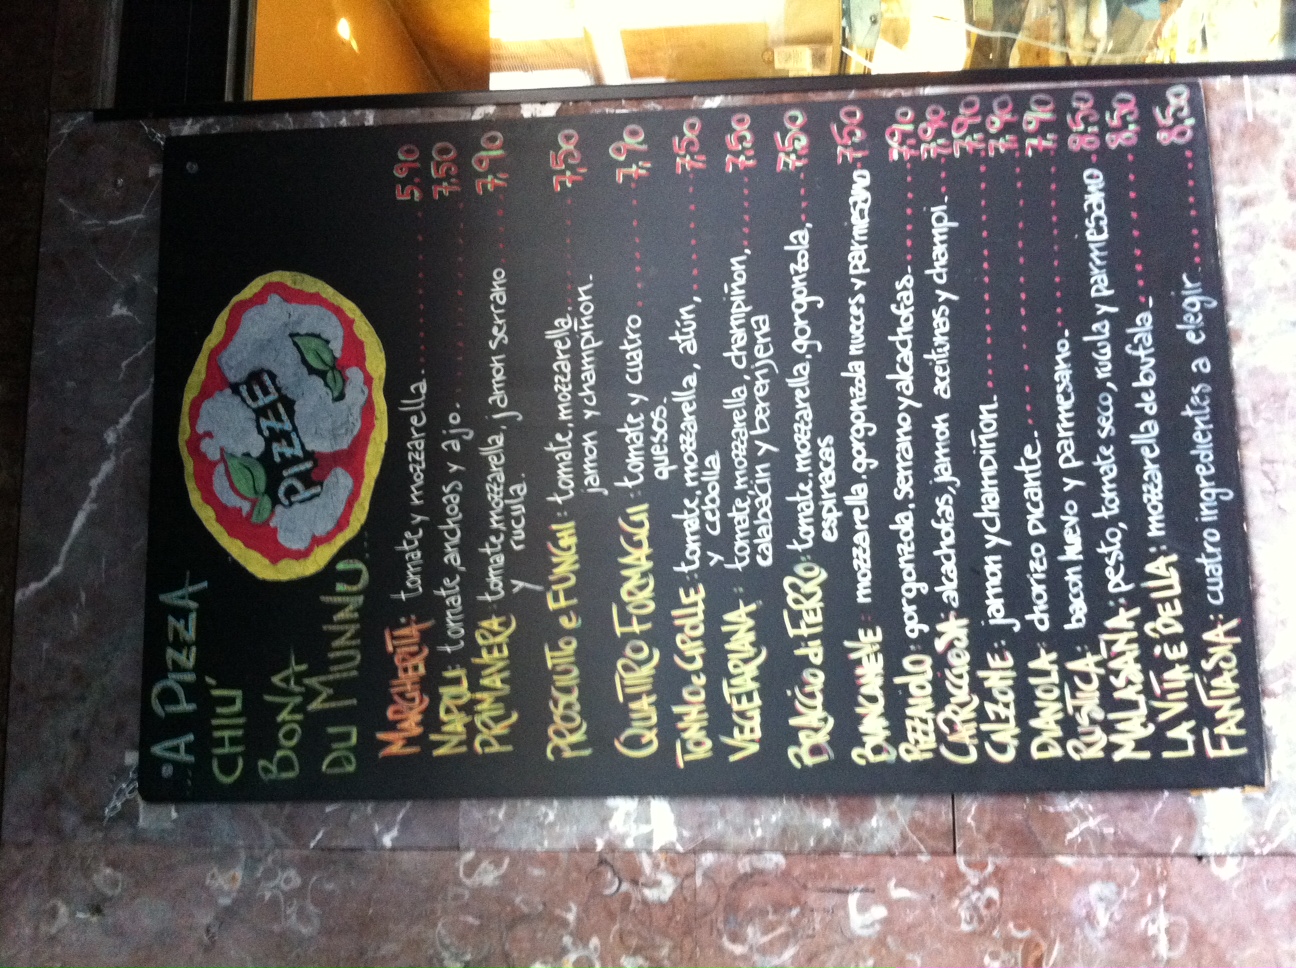 ...A PIZZA
CHIÙ
BONA
DU MUNNU...
PIZZE
MARGHERITA: tomate y mozzarella............ 5.90
NAPOLI: tomate, anchoas y ajo. ............ 7,50
PRIMAVERA: tomate, mozzarella, jamon serrano ...... 7,90
y rucula.
PROSCIUTTO e FUNGHI: tomate, mozzarella......... 7,50
jamon y champiñon.
QUATTRO FORMAGGI: tomate y cuatro ......... 7,90
quesos.
TONNO e CIPOLLE: tomate, mozzarella, atún, ....... 7,50
y cebolla
VEGETARIANA: tomate mozzarella, champiñon, ..... 7.50
calabacín y berenjena
BRACCIO di FERRO: tomate, mozzarella, gorgonzola, .... 7,50
espinacas
BIANCANEVE: mozzarella, gorgonzola nueces y parmesano 7,50
PIZZAIOLO: gorgonzola, serrano y alcachofas....... 7,90
CAPRICCIOSA: alcachofas, jamon aceitunas y champi.... 7,90
CALZONE: jamon y champiñon. ............ 7,90
DIAVOLA: chorizo picante. ............ 7,90
RUSTICA: bacon huevo y parmesano. ........ 8,50
MALASAÑA: pesto, tomate seco, rucula y parmesano . 8,50
LA VITA È BELLA: mozzarella de bufala. ....... 8,50
FANTASIA: cuatro ingredientes a elegir......... 8,50